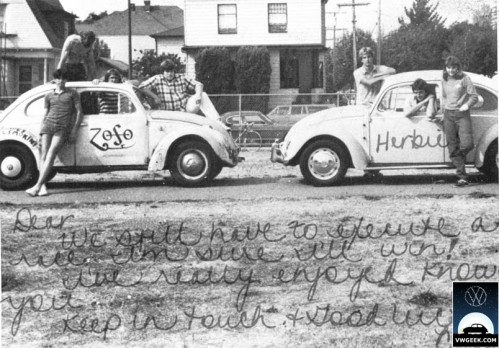 Zofo
Herbie
Dear
We still have to execute a
race. I'm sure I'll win!
I've really enjoyed know
you.
Keep in touch. & Good lu
VW
VWGEEK.COM